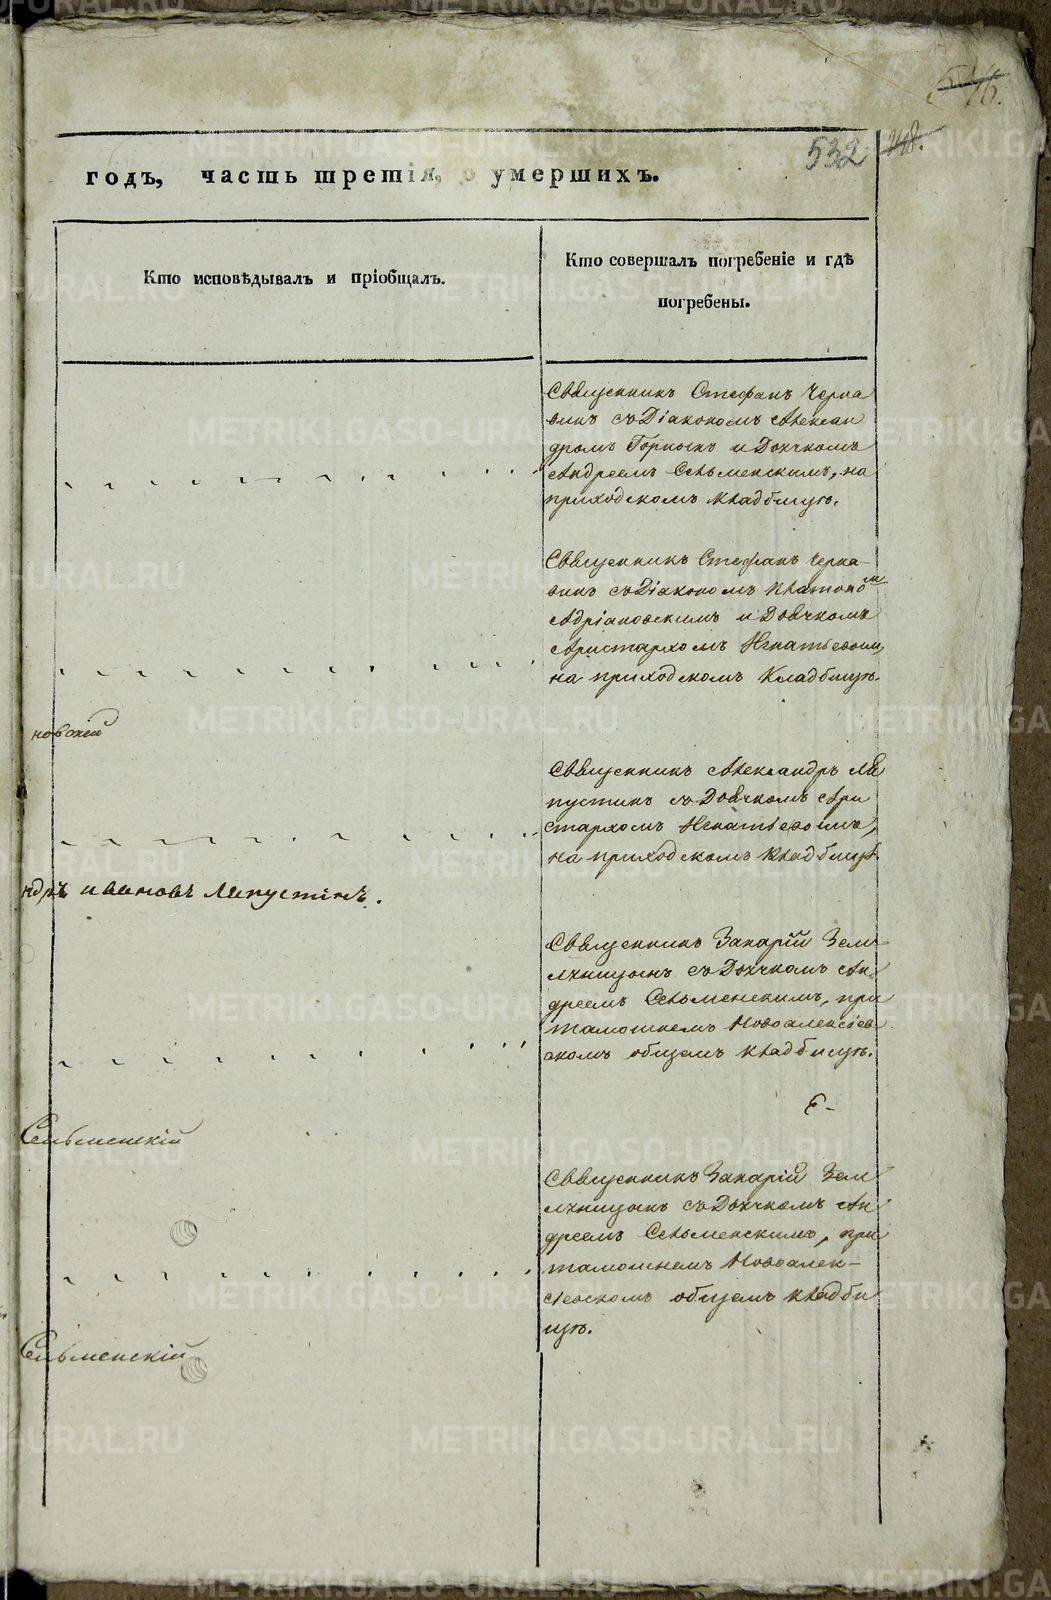 546.
532
418.
годъ, часть третія, о умершихъ.
Кто исповѣдывалъ и пріобщалъ.
Кто совершалъ погребеніе и гдѣ
погребены.
Священникъ Стефанъ Черна
винъ съ Діакономъ Алексан
дромъ Горныхъ и Дьячкомъ
Андреемъ Сельменскимъ, на
приходскомъ кладбищѣ.
Священникъ Стефанъ Черна-
винъ съ Діакономъ Платоно
Адріановскимъ и Дьячкомъ
Аристархомъ Игнатьевымъ,
на приходскомъ Кладбищѣ.
новскій
Священникъ Александръ Ля
пустинъ съ Дьячкомъ Ари
стархомъ Игнатьевымъ,
на приходскомъ кладбищѣ.
ндръ ивановъ Ляпустинъ.
Священникъ Захарій Земл
яницынъ съ Дьячкомъ Ан
дреемъ Сельменскимъ, при
тамошнемъ Новоалексіев
скомъ общемъ кладбищѣ.
Сельменскій
Священникъ Захарій Зем
ляницынъ съ Дьячкомъ Ан
дреемъ Сельменскимъ, при
тамошнемъ Новоалек-
сіевскомъ общемъ кладби
щѣ.
Сельменскій
METRIKI.GASO-URAL.RU